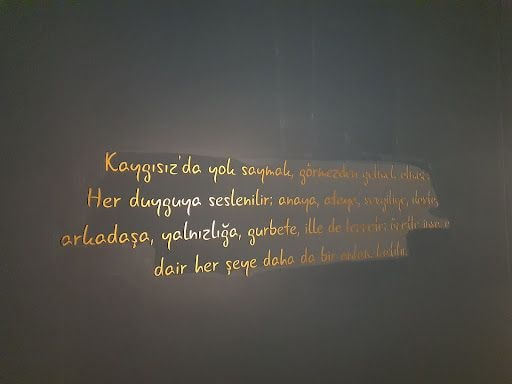 Kaygısız'da yok saymak, görmezden gelmek
Her duyguya seslenilir; anaya, sevgiliye,
arkadaşa, yalnızlığa, gurbete, ille de
dair her şeye daha da bir anlam